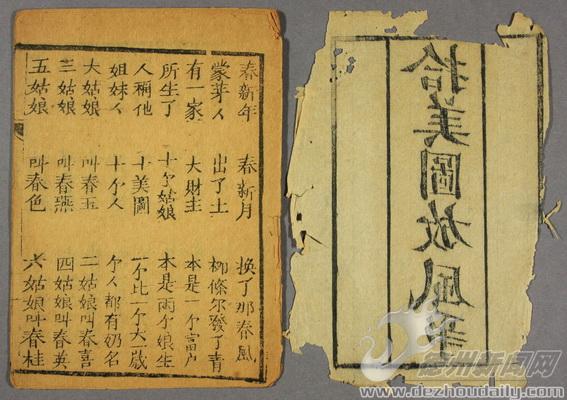 拾美圖放風
春新年 春新月 換了那春風
蒙芽人 出了土 柳條尔發了青
有一家 大財主 本是一个富户
所生了 十个姑娘 本是兩个娘生
人稱他 十美圖 一个比一个大一歲
姐妹人 十个人 个人都有奶名
大姑娘 叫春玉 二姑娘叫春喜
三姑娘 叫春燕 四姑娘叫春英
五姑娘 叫春色 六姑娘叫春桂
德州新闻网
www.dezhoudaily.com